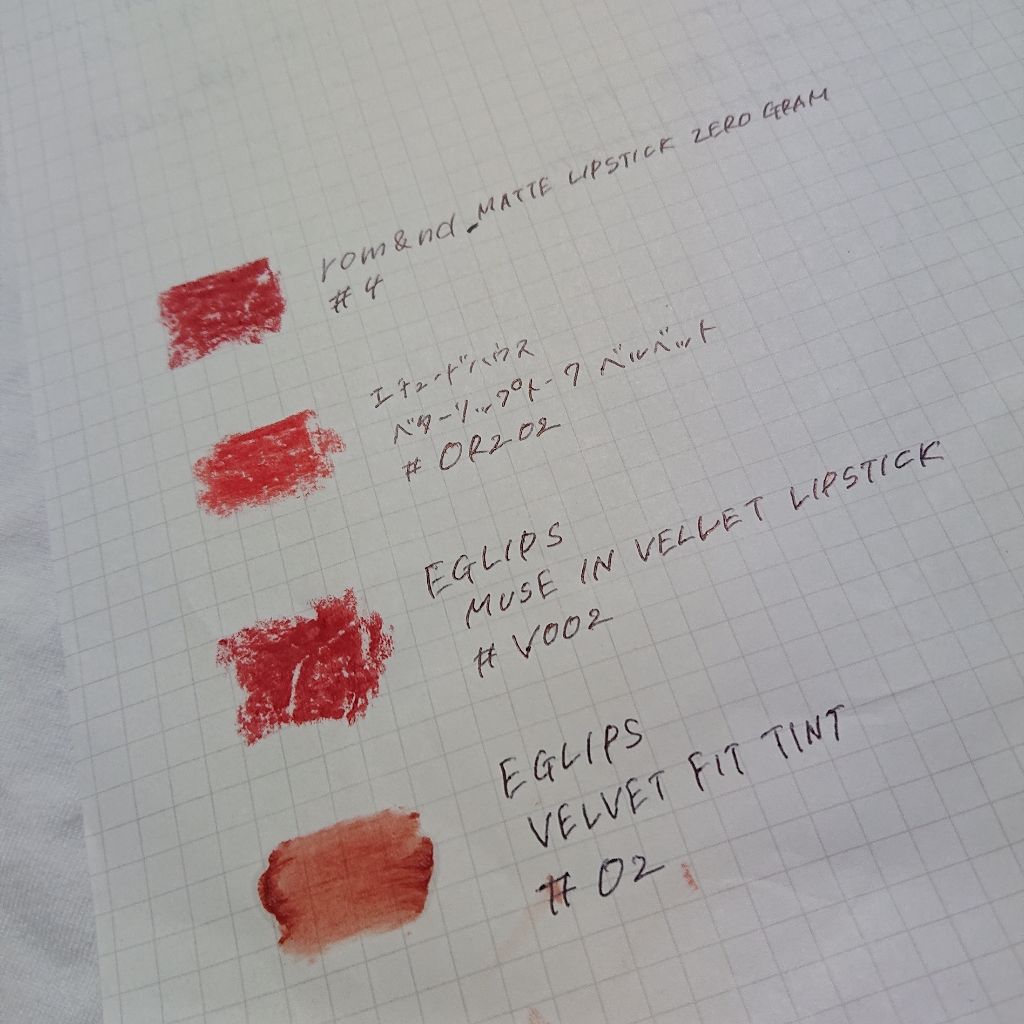 rom&nd_MATTE LIPSTICK ZERO GRAM
#4
エチュードハウス
ベターリップトーク ベルベット
#OR202
EGLIPS
MUSE IN VELLET LIPSTICK
#V002
EGLIPS
VELVET FIT TINT
#02